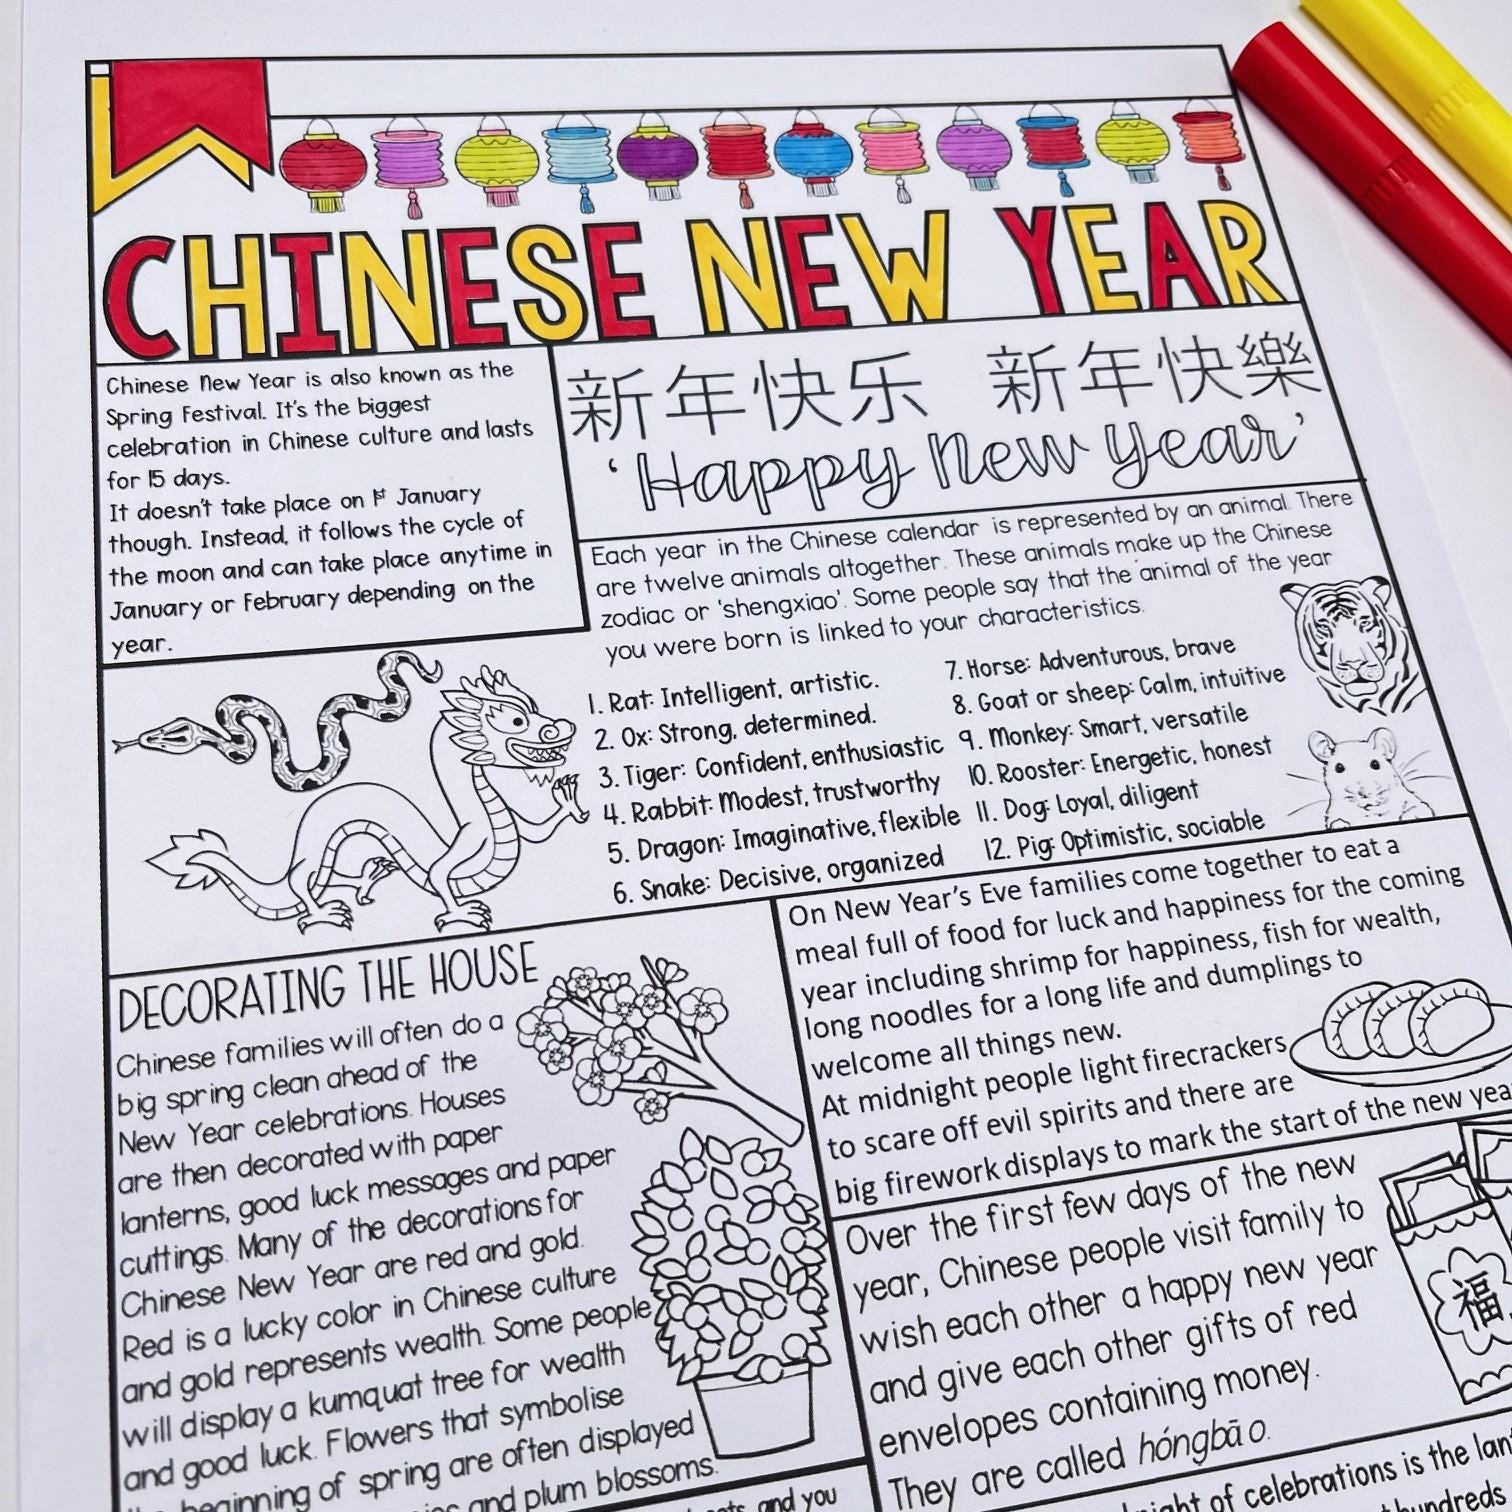 CHINESE NEW YEAR
Chinese New Year is also known as the
Spring Festival. It's the biggest
celebration in Chinese culture and lasts
for 15 days.
It doesn't take place on 1st January
though. Instead, it follows the cycle of
the moon and can take place anytime in
January or February depending on the
year.
新年快乐 新年快樂
'Happy New Year'
Each year in the Chinese calendar is represented by an animal. There
are twelve animals altogether. These animals make up the Chinese
zodiac or 'shengxiao'. Some people say that the animal of the year
you were born is linked to your characteristics.
1. Rat: Intelligent, artistic.
2. Ox: Strong, determined.
3. Tiger: Confident, enthusiastic
4. Rabbit: Modest, trustworthy
5. Dragon: Imaginative, flexible
6. Snake: Decisive, organized
7. Horse: Adventurous, brave
8. Goat or sheep: Calm, intuitive
9. Monkey: Smart, versatile
10. Rooster: Energetic, honest
11. Dog: Loyal, diligent
12. Pig: Optimistic, sociable
DECORATING THE HOUSE
Chinese families will often do a
big spring clean ahead of the
New Year celebrations. Houses
are then decorated with paper
lanterns, good luck messages and paper
cuttings. Many of the decorations for
Chinese New Year are red and gold.
Red is a lucky color in Chinese culture
and gold represents wealth. Some people
will display a kumquat tree for wealth
and good luck. Flowers that symbolise
beginning of spring are often displayed
and plum blossoms.
and you
On New Year's Eve families come together to eat a
meal full of food for luck and happiness for the coming
year including shrimp for happiness, fish for wealth,
long noodles for a long life and dumplings to
welcome all things new.
At midnight people light firecrackers
to scare off evil spirits and there are
big firework displays to mark the start of the new
Over the first few days of the new
year, Chinese people visit family to
wish each other a happy new year
and give each other gifts of red
envelopes containing money.
They are called hóngbāo.
福
of celebrations is the
hundreds